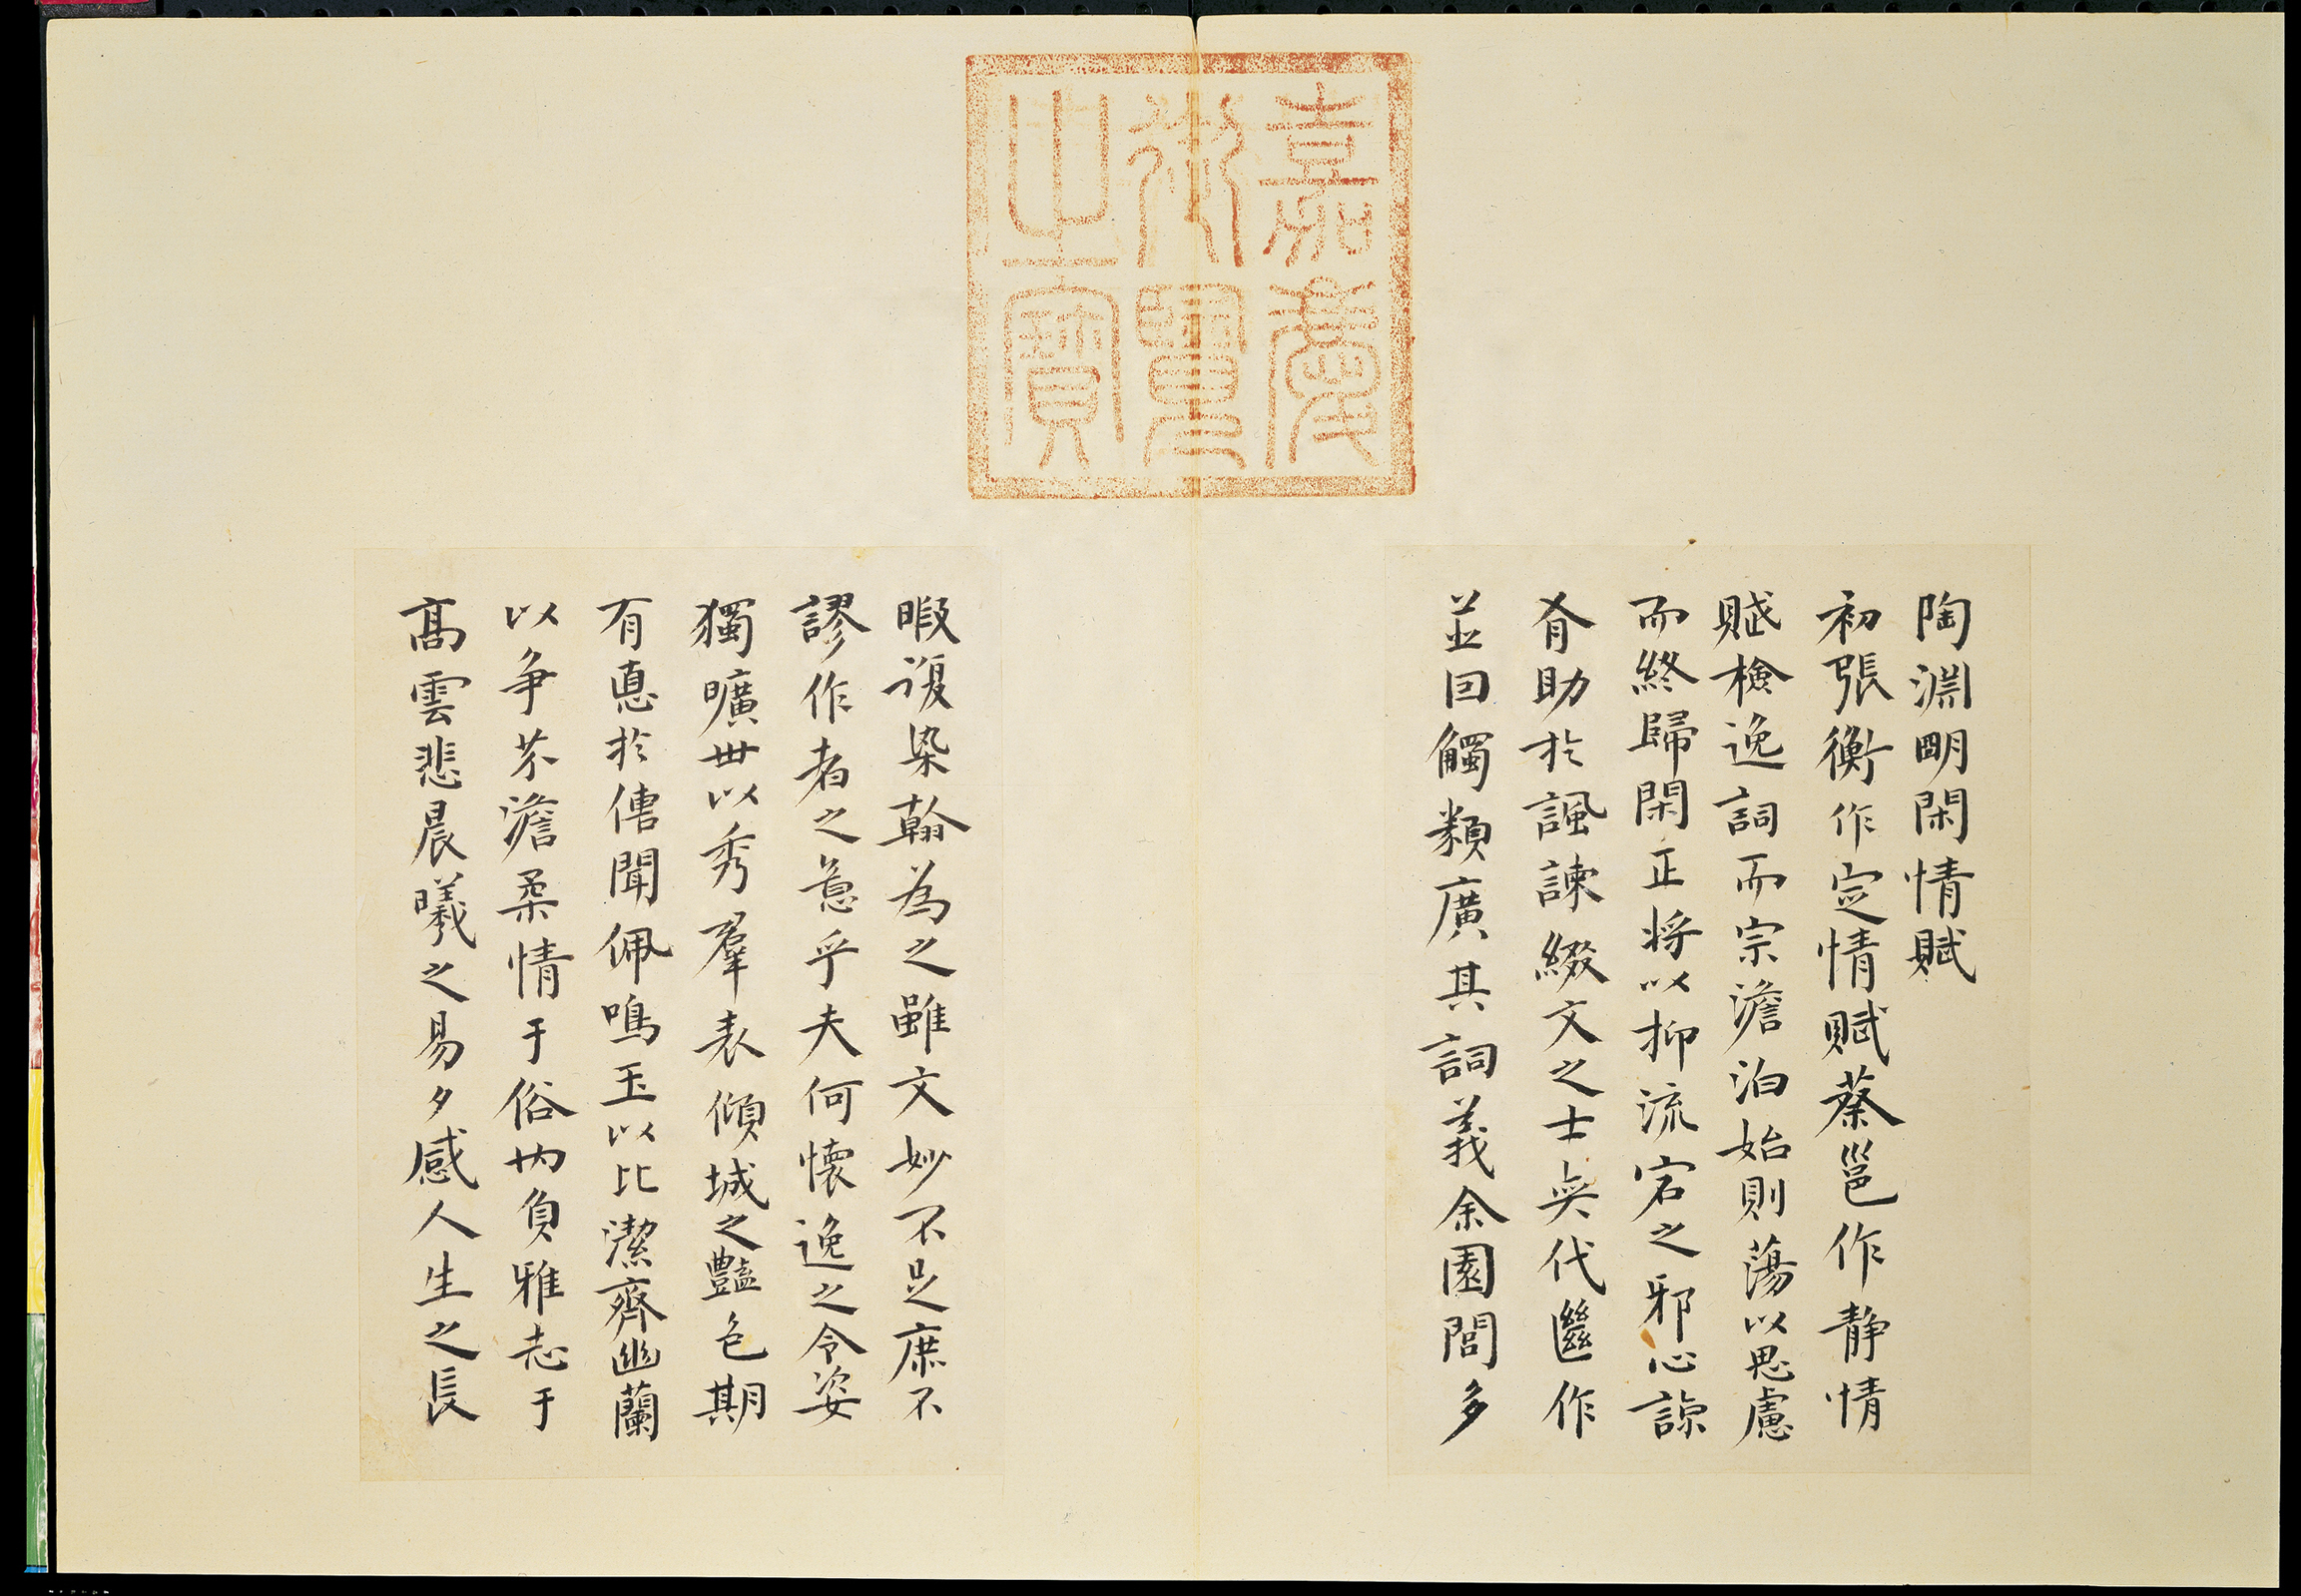 嘉慶
御覽
之寶
陶淵明閑情賦
初張衡作定情賦蔡邕作静情
賦檢逸詞而宗澹泊始則蕩以思慮
而終歸閑正将以抑流宕之邪心諒
有助於諷諫綴文之士奕代繼作
並回觸類廣其詞義余園閭多
暇復染翰為之雖文妙不足庶不
謬作者之意乎夫何懷逸之令姿
獨曠世以秀羣表傾城之豔色期
有惪於傳聞佩鳴玉以比潔齊幽蘭
以争芬澹柔情于俗内負雅志于
髙雲悲晨曦之易夕感人生之長